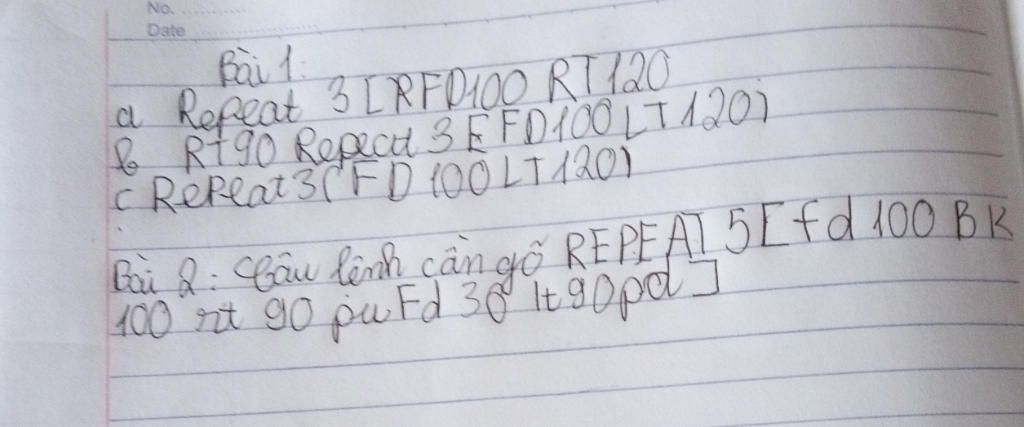 No. ............
Date ........................
Bài 1:
a Repeat 3 [RFD100 RT120
b RT90 Repeat 3 [FD100LT120)
c RePeat3(FD 100LT120)
Bài 2: Câu lệnh cần gõ REPEAT 5[fd 100 BK
100 rt 90 pu Fd 30 lt90pd]